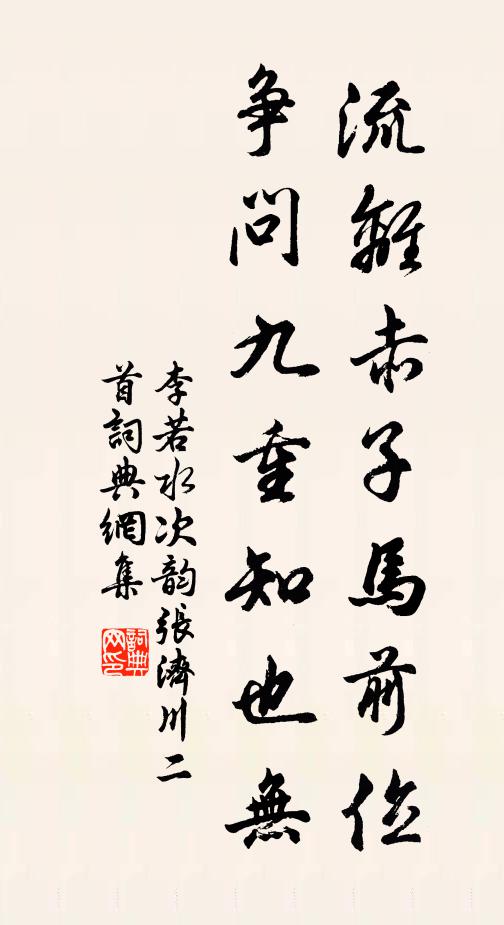 流離赤子馬前泣
争問九重知也無
李若水次韵張濟川二
首詞典網集
詞典
网印